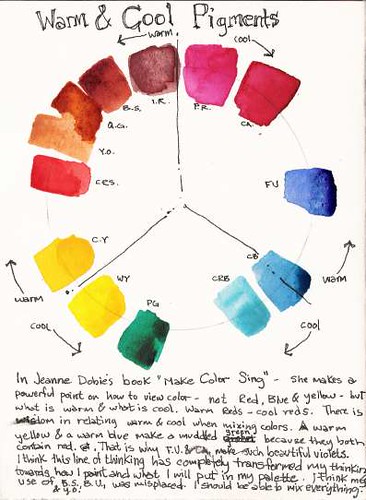 Warm & Cool Pigments
warm
cool
I.R.
P.R.
B.S.
CA.
Q.G.
Y.O.
CRS.
FU
C.Y
CB
WY
CRB
warm
warm
PG
cool
cool
In Jeanne Dobie's book "Make Color Sing" - she makes a
powerful point on how to view color - not Red, Blue & yellow - but
what is warm & what is cool. Warm Reds - cool reds. There is
wisdom in relating warm & cool when mixing colors. A warm
yellow & a warm blue make a muddied green because they both
contain red. That is why F.U. & CA, make such beautiful violets.
I think this line of thinking has completely transformed my thinking
towards how I paint and what I will put in my palette. I think my
use of, B.S. B.U, was misplaced. I should be able to mix everything!
& y.o.'